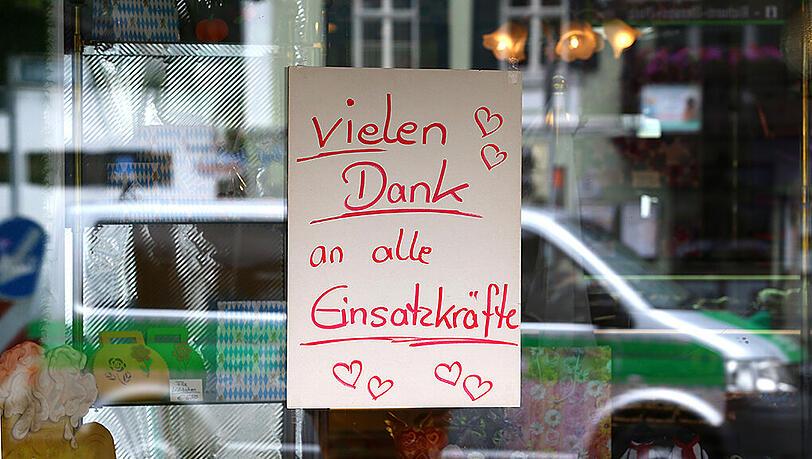 Vielen
Dank
an alle
Einsatzkräfte